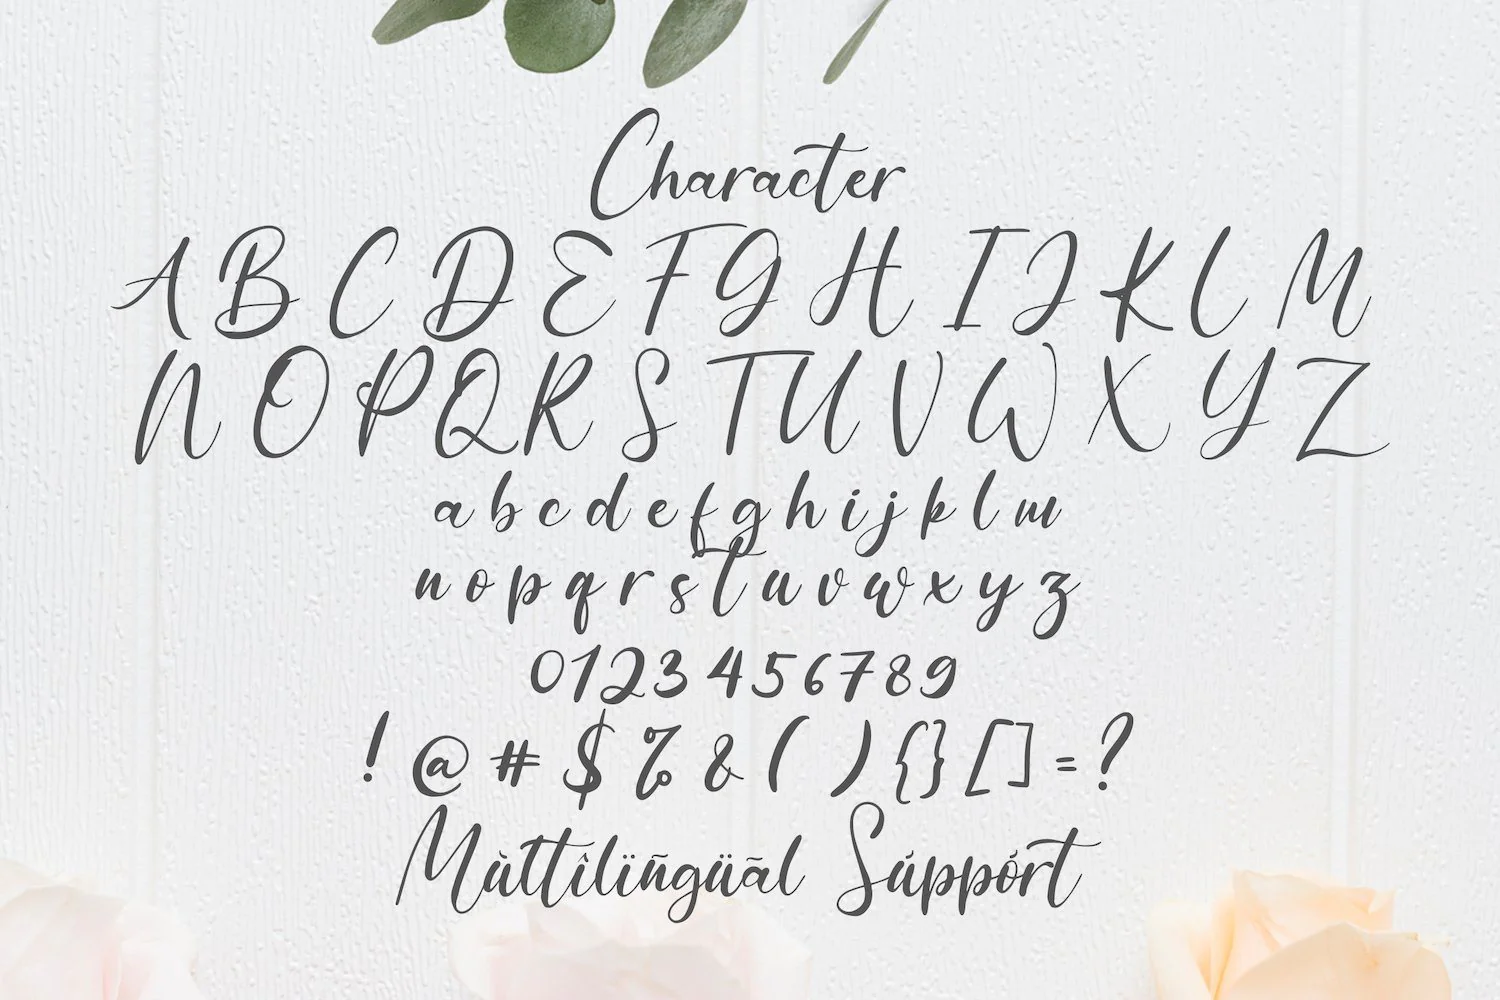 Character
A B C D E F G H I J K L M
N O P Q R S T U V W X Y Z
a b c d e f g h i j k l m
n o p q r s t u v w x y z
0 1 2 3 4 5 6 7 8 9
! @ # $ % & ( ) { } [ ] = ?
Mùttîlïñgüãl Súppórt